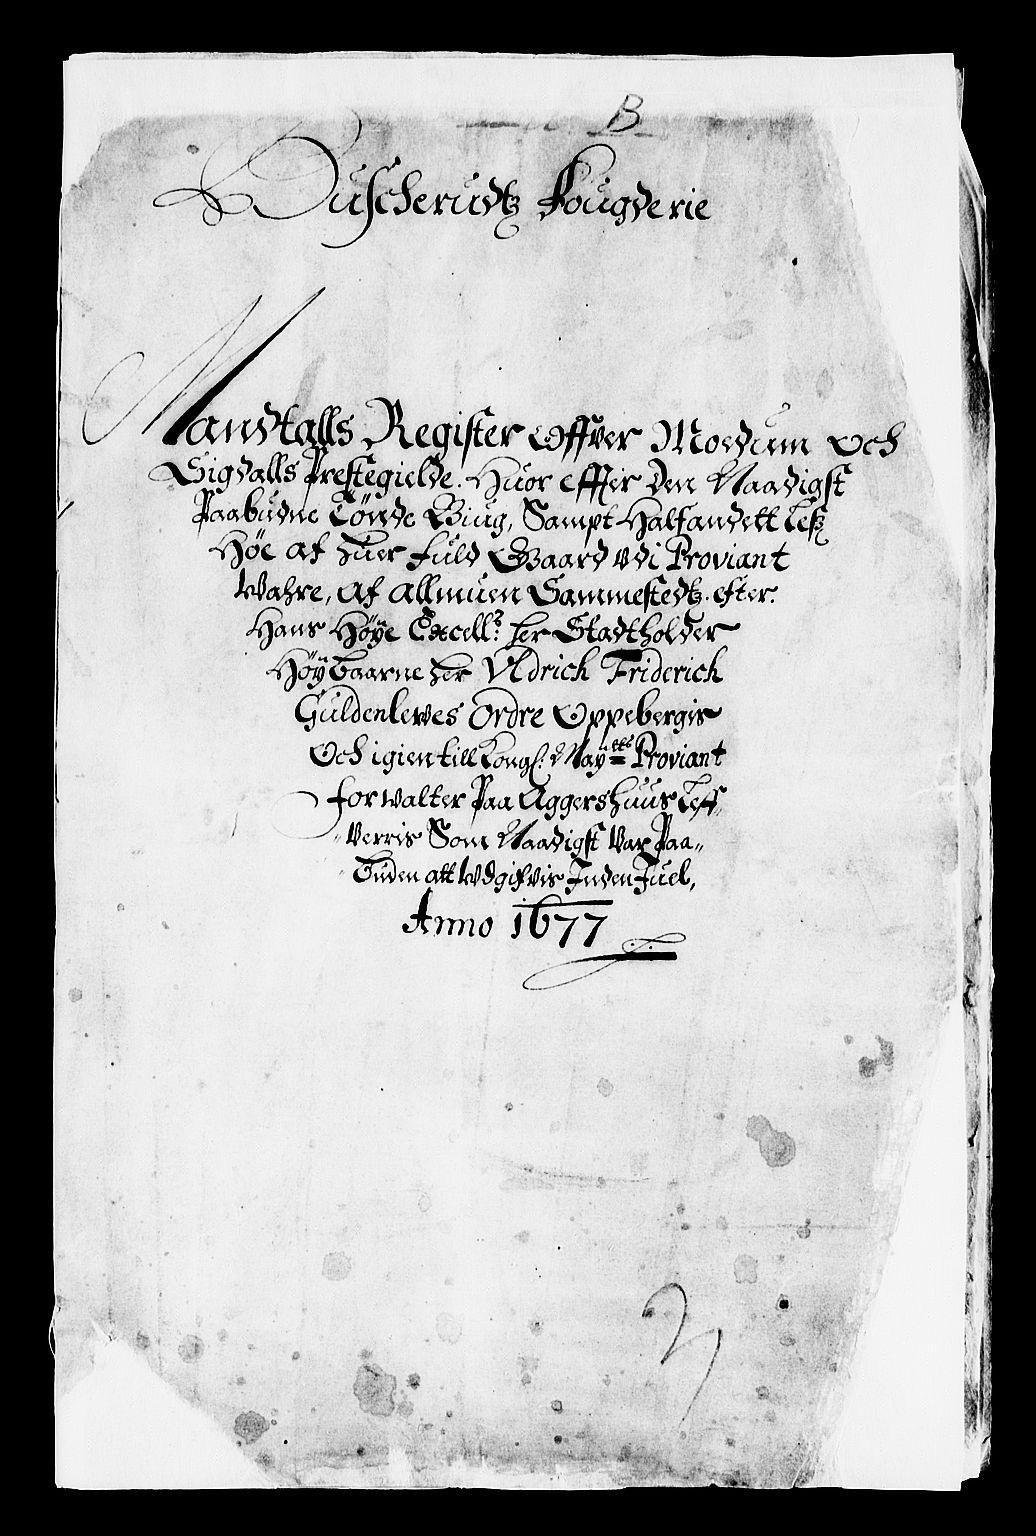 B
Buscherudtz Fougderie
Mandtalls Register Offver Moedum Och
Sigdalls Prestegielde. Huor effter den Naadigst
Paabudne Tönde Biug, Sampt Halfandett Less
Høe af huer fuld Gaard udi Proviant
Wahre, af allmuen Sammestedtz. efter.
Hans Høye Excell: her Stadtholder
Høybaarne her Uldrich Friderich
Guldenlewes Ordre Oppebergis
Och igien till Kongl: Mayᵗᵗˢ Proviant
forwalter Paa Aggershuus Leff„
„verris Som Naadigst Var Paa„
buden att Udgifvis Inden Juel,
Anno 1677